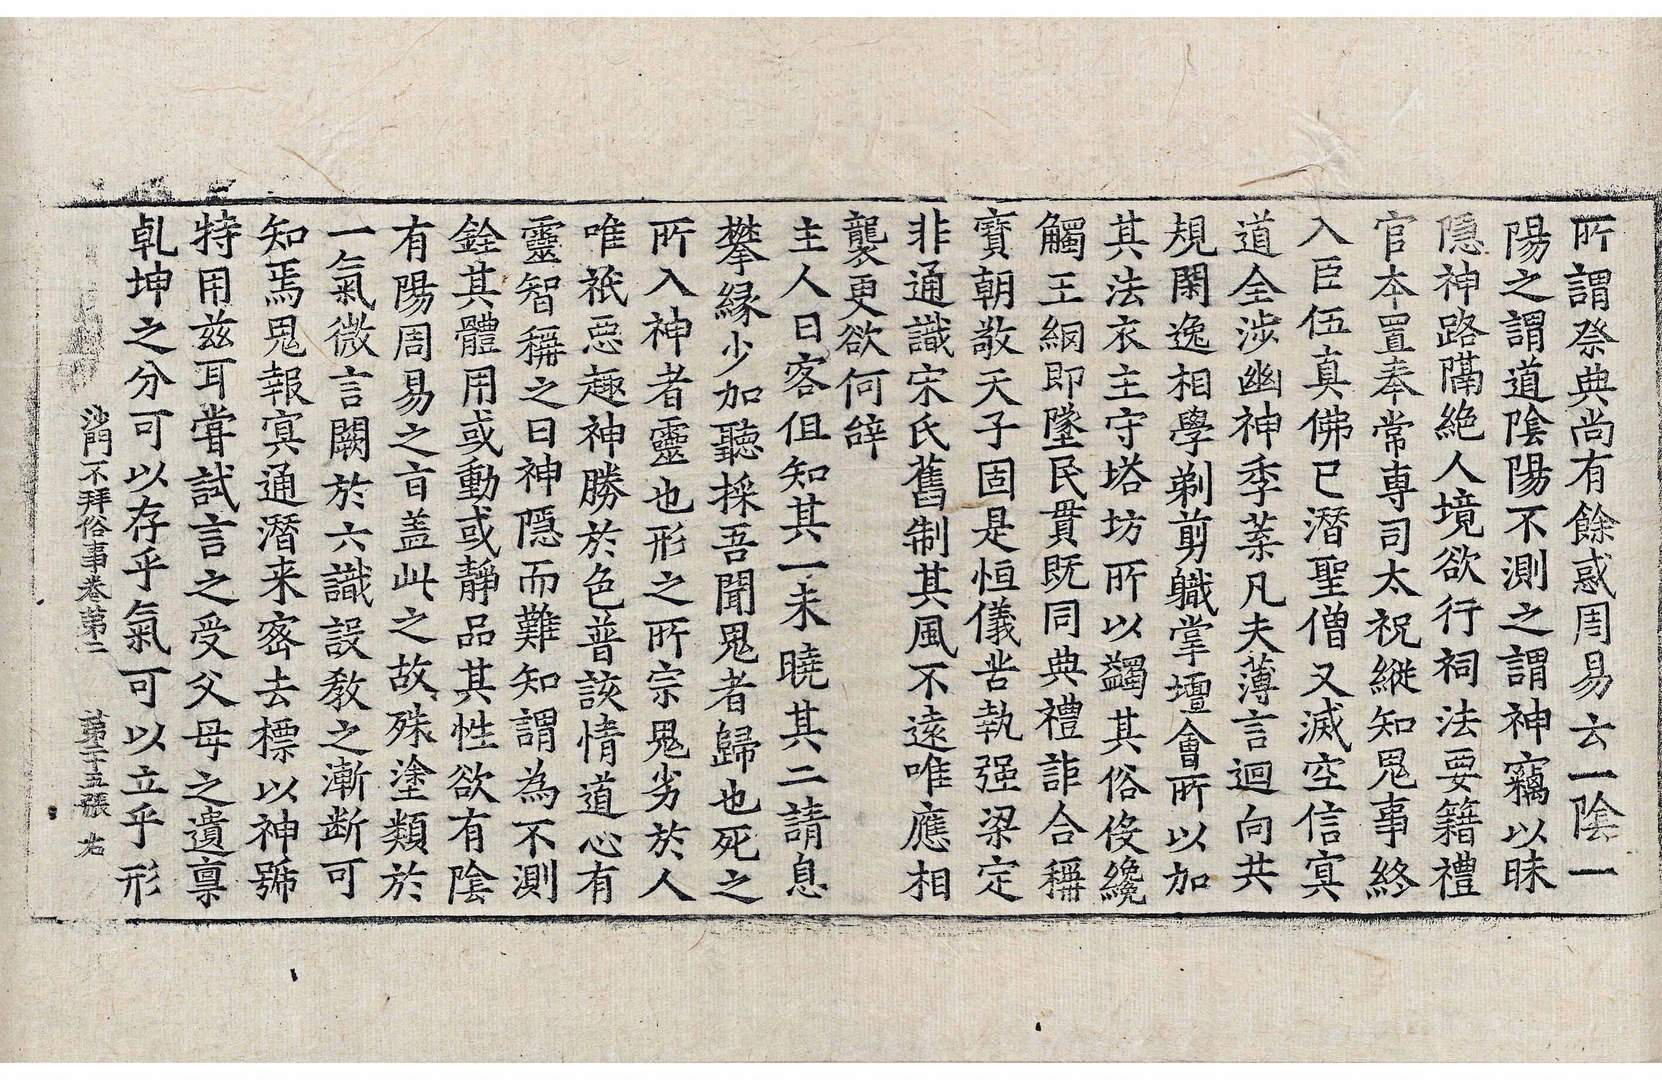 所謂祭典尚有餘惑周易云一陰一
陽之謂道陰陽不測之謂神竊以昧
隱神路隔絕人境欲行祠法要籍禮
官本置奉常專司太祝縱知鬼事終
入臣伍真佛已潛聖僧又滅空信冥
道全涉幽神季葉凡夫薄言迴向共
規閑逸相學剃剪職掌壇會所以加
其法衣主守塔坊所以蠲其俗役纔
觸王網即墜民貫既同典禮詎合稱
寳朝敬天子固是恒儀苦執强梁定
非通識宋氏舊制其風不遠唯應相
襲更欲何辝
主人曰客但知其一未曉其二請息
攀縁少加聽採吾聞鬼者歸也死之
所入神者靈也形之所宗鬼劣於人
唯祇惡趣神勝於色普該情道心有
靈智稱之曰神隱而難知謂為不測
銓其體用或動或靜品其性欲有陰
有陽周易之旨盖此之故殊塗類於
一氣微言闕於六識設教之漸断可
知焉鬼報冥通潛来密去標以神號
特用兹耳嘗試言之受父母之遺稟
乹坤之分可以存乎氣可以立乎形
沙門不拜俗事卷第二　第二十五張　右